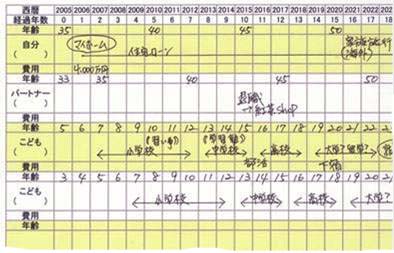 西暦 2005 2006 2007 2008 2009 2010 2011 2012 2013 2014 2015 2016 2017 2018 2019 2020 2021 2022 202
経過年数 0 1 2 3 4 5 6 7 8 9 10 11 12 13 14 15 16 17 18
年齢 35 40 45 50
自分 マイホーム 住宅ローン
( ) (海外)
費用 4,000万円
年齢 33 35 40 45 50
パートナー 退職
( ) →紅茶shop
費用
年齢 5 6 7 8 9 10 11 12 13 14 15 16 17 18 19 20 21 22 2
こども (習い事) (学習塾)
( ) 小学校 中学校 高校 大学?留学?
費用 部活 下宿
年齢 3 4 5 6 7 8 9 10 11 12 13 14 15 16 17 18 19 20 21
こども
( ) 小学校 中学校 高校 大学?
費用
年齢